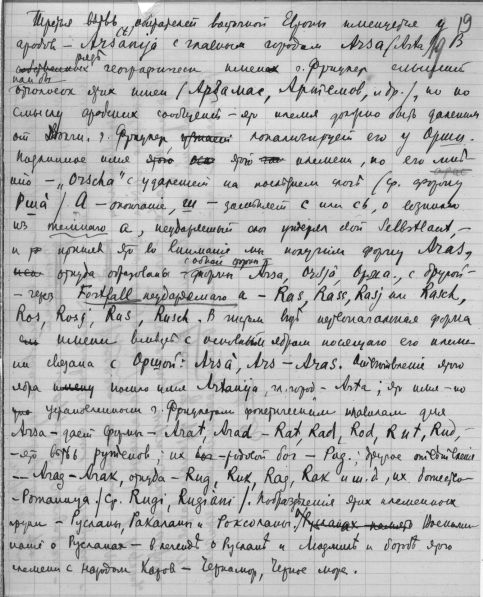 Третья ветвь обитателей восточной Европы именуется у 19
арабов – Arsanija с главным городом Arsa (Arta). В
ряде географических имен г. Фрицлер слышит
отголосок этих имен (Арзамас, Артемов, и др.), но по
смыслу арабских сообщений – это племя должно быть далеким
от Волги. г. Фрицлер локализирует его у Орши.
Подлинное имя этого племени, по его мне-
нию – „Orscha" с ударением на последнем слоге (Ср. форму
Рша) / А – окончание, ш – заменяет с или сь, о возникло
из темного а, неударяемый слог утерял свой Selbstlaut, –
и приняв это во внимание мы получим форму Aras,
откуда образованы с одной стороны формы Arsa, Orsja, Орша, с другой –
– через Fortfall неударяемого а – Ras, Rass, Rasj или Rasch,
Ros, Rosj, Rus, Rusch. В таком виде первоначальная форма
имени вместе с основным ядром носящего его племе-
ни связана с Оршой: Arsa, Ars – Aras. Ответвление этого
ядра носило имя Artanija, гл. город – Arta; это имя – по
установленным г. Фрицлером фонетическим правилам для
Arsa – дает формы – Arat, Arad – Rat, Rad, Rod, Rut, Rud, –
– это ветвь рутенов; их родовой бог – Рад.; другое ответвление
– Arag – Arak, откуда – Rug, Ruk, Rag, Rak и т.д., их божество
– Ругианица. / Ср. Rugi, Rugiani /. Подразделения этих племенных
групп – Русланы, Рахаланы и Роксоланы. Воспоми-
нание о Русланах – в легенде о Руслане и Людмиле и борьбе этого
племени с народом Каров – Черномор, Черное море.